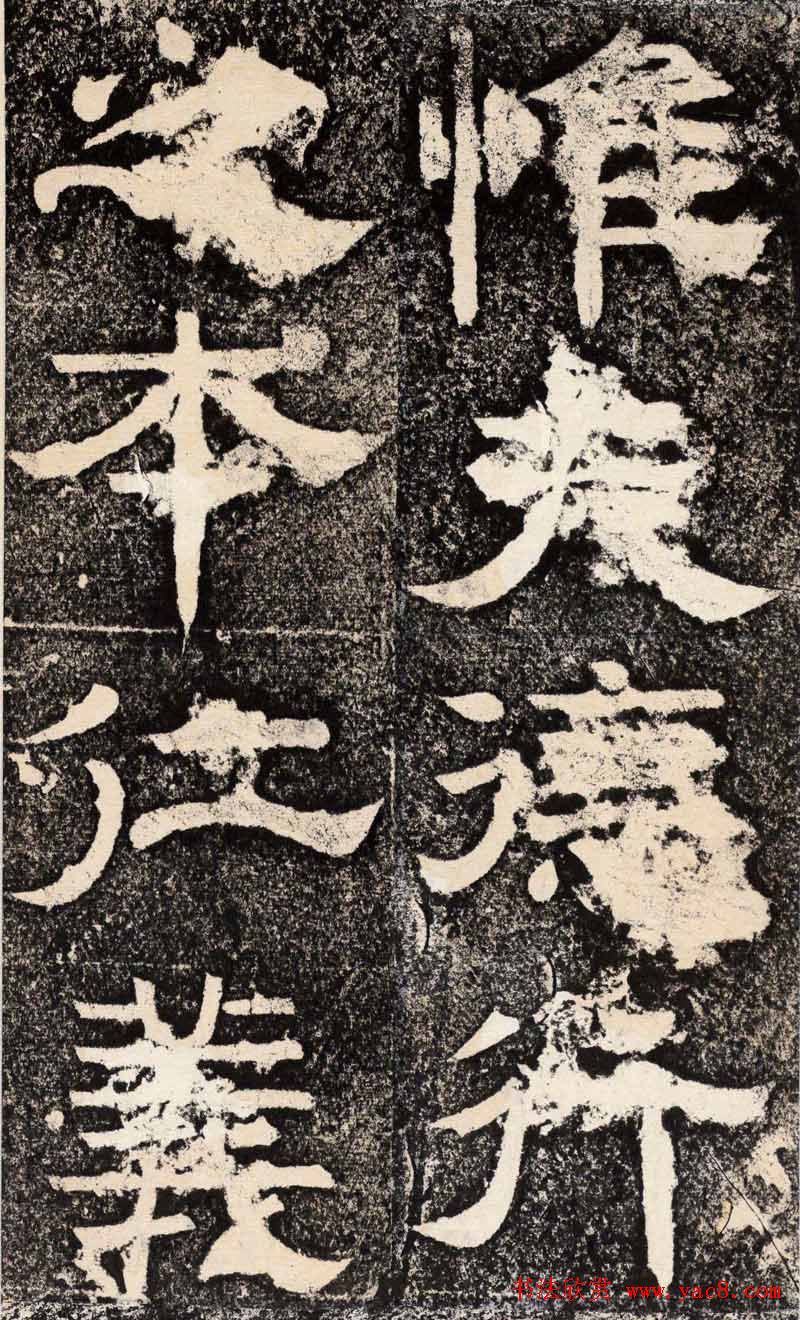 惟夫行
之本義
书法欣赏 www.yac8.com